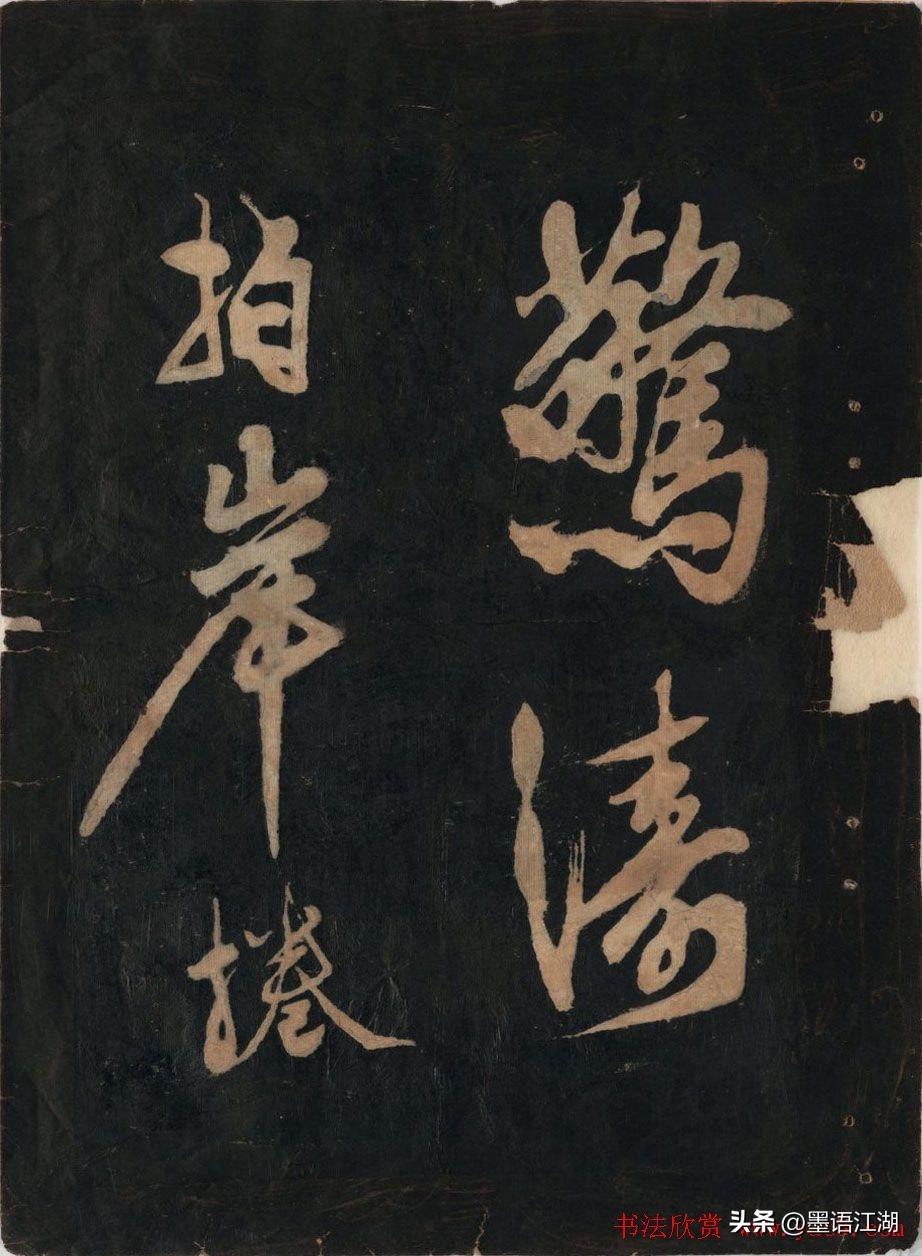 驚濤
拍岸捲
书法欣赏
头条 @墨语江湖